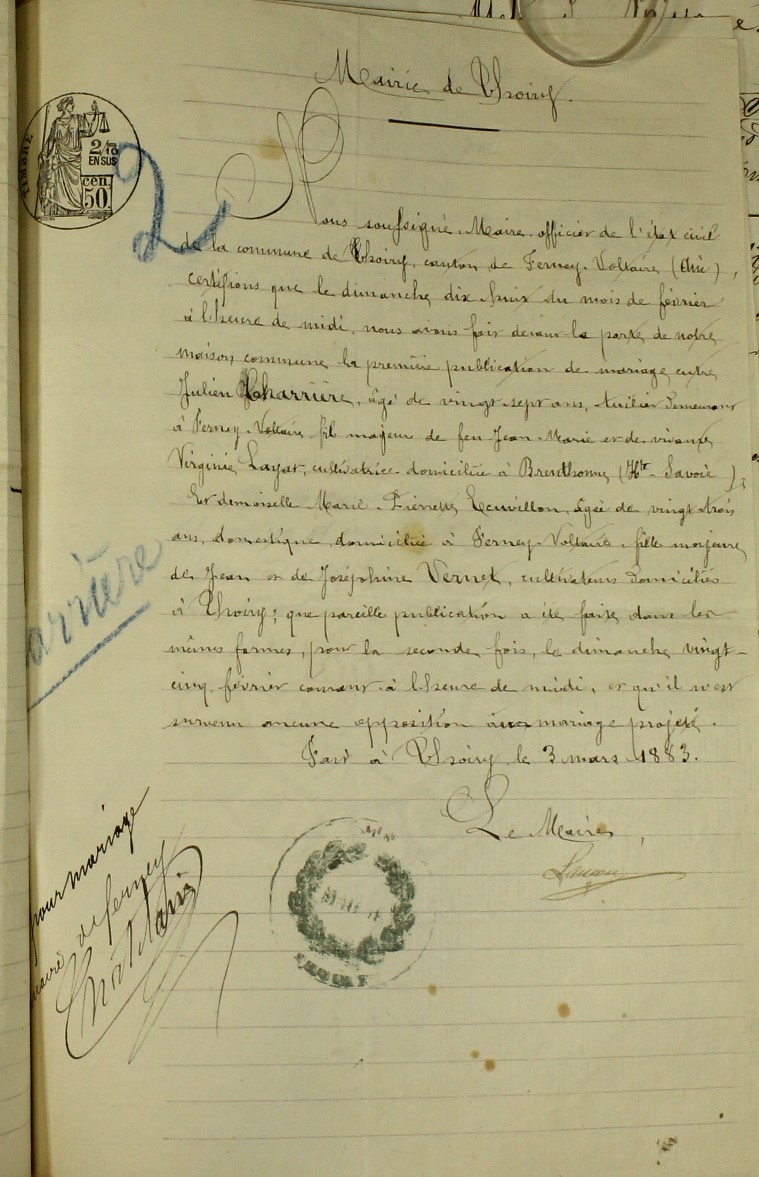 Mairie de Thoiry.
TIMBRE
2/10
EN SUS
cen.
50.
2
Nous soussigné, Maire, officier de l'état civil
de la commune de Thoiry, canton de Ferney-Voltaire (Ain),
certifions que le dimanche dix huit du mois de février
à l'heure de midi, nous avons fait devant la porte de notre
maison commune la première publication de mariage entre
Julien Charrière, âgé de vingt-sept ans, tuilier demeurant
à Ferney-Voltaire fils majeur de feu Jean-Marie et de vivante
Virginie Layat, cultivatrice domiciliée à Brenthonne (Hte-Savoie);
Et demoiselle Marie-Pierrette, âgée de vingt trois
ans, domestique, domiciliée à Ferney-Voltaire, fille majeure
de Jean et de Joséphine Vernet, cultivateurs domiciliés
à Thoiry; que pareille publication a été faite dans les
mêmes formes, pour la seconde fois, le dimanche vingt-
cinq février courant à l'heure de midi, et qu'il n'est
survenu aucune opposition au mariage projeté.
Fait à Thoiry le 3 mars 1883.
Le Maire,
arrière
pour mariage
maire de Ferney